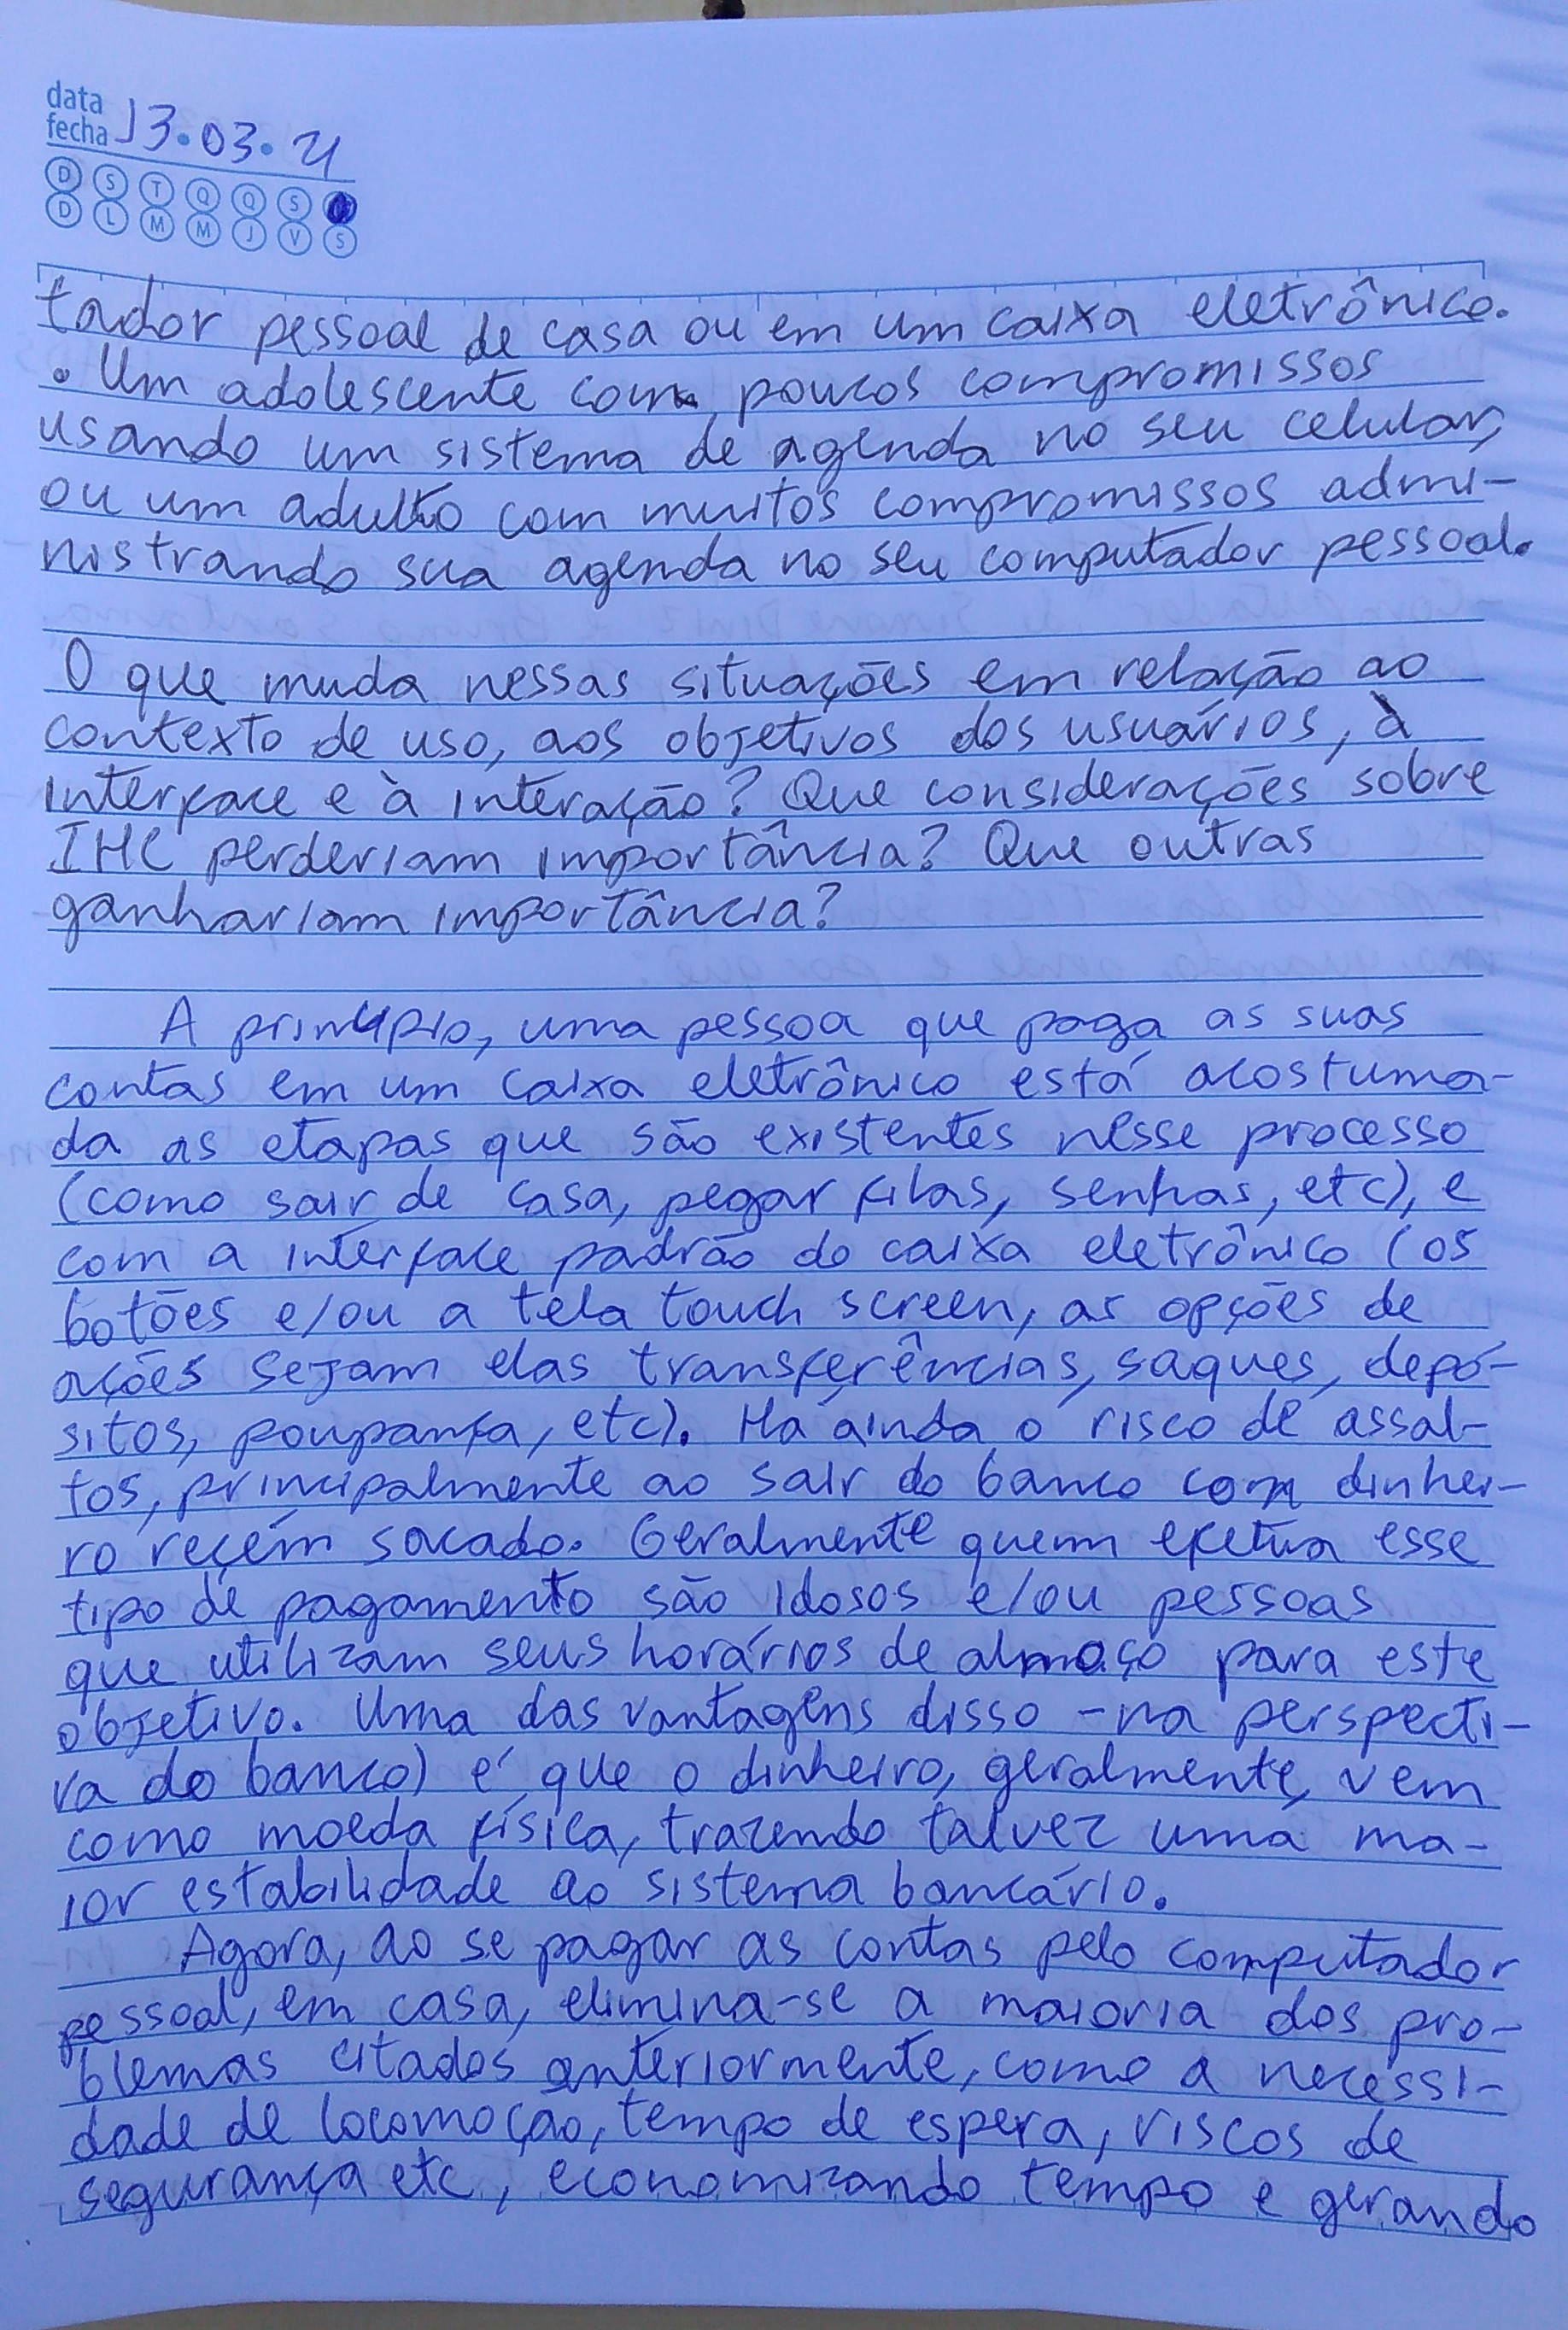 data
fecha 13.03.21
D S T Q Q S
D L M M J V S
tador pessoal de casa ou em um caixa eletrônico.
. Um adolescente com poucos compromissos
usando um sistema de agenda no seu celular,
ou um adulto com muitos compromissos admi-
nistrando sua agenda no seu computador pessoal.
O que muda nessas situações em relação ao
contexto de uso, aos objetivos dos usuários, à
interface e à interação? Que considerações sobre
IHC perderiam importância? Que outras
ganhariam importância?
A princípio, uma pessoa que paga as suas
contas em um caixa eletrônico está acostuma-
da as etapas que são existentes nesse processo
(como sair de casa, pegar filas, senhas, etc), e
com a interface padrão do caixa eletrônico (os
botões e/ou a tela touch screen, as opções de
ações sejam elas transferências, saques, depó-
sitos, poupança, etc). Há ainda o risco de assal-
tos, principalmente ao sair do banco com dinhei-
ro reçém sacado. Geralmente quem efetua esse
tipo de pagamento são idosos e/ou pessoas
que utilizam seus horários de almoço para este
objetivo. Uma das vantagens disso - na perspecti-
va do banco) é que o dinheiro, geralmente, vem
como moeda física, trazendo talvez uma ma-
ior estabilidade ao sistema bancário.
Agora, ao se pagar as contas pelo computador
pessoal, em casa, elimina-se a maioria dos pro-
blemas citados anteriormente, como a necessi-
dade de locomoção, tempo de espera, riscos de
segurança etc, economizando tempo e gerando